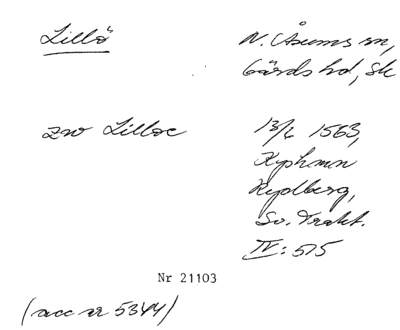 Lillö
N. Åsums sn,
Gärds hd, Sk
zw Lilloe
13/6 1563,
Kyphmen
Rydberg,
Sv. Trakt.
IV: 515
Nr 21103
(acc nr 5344)